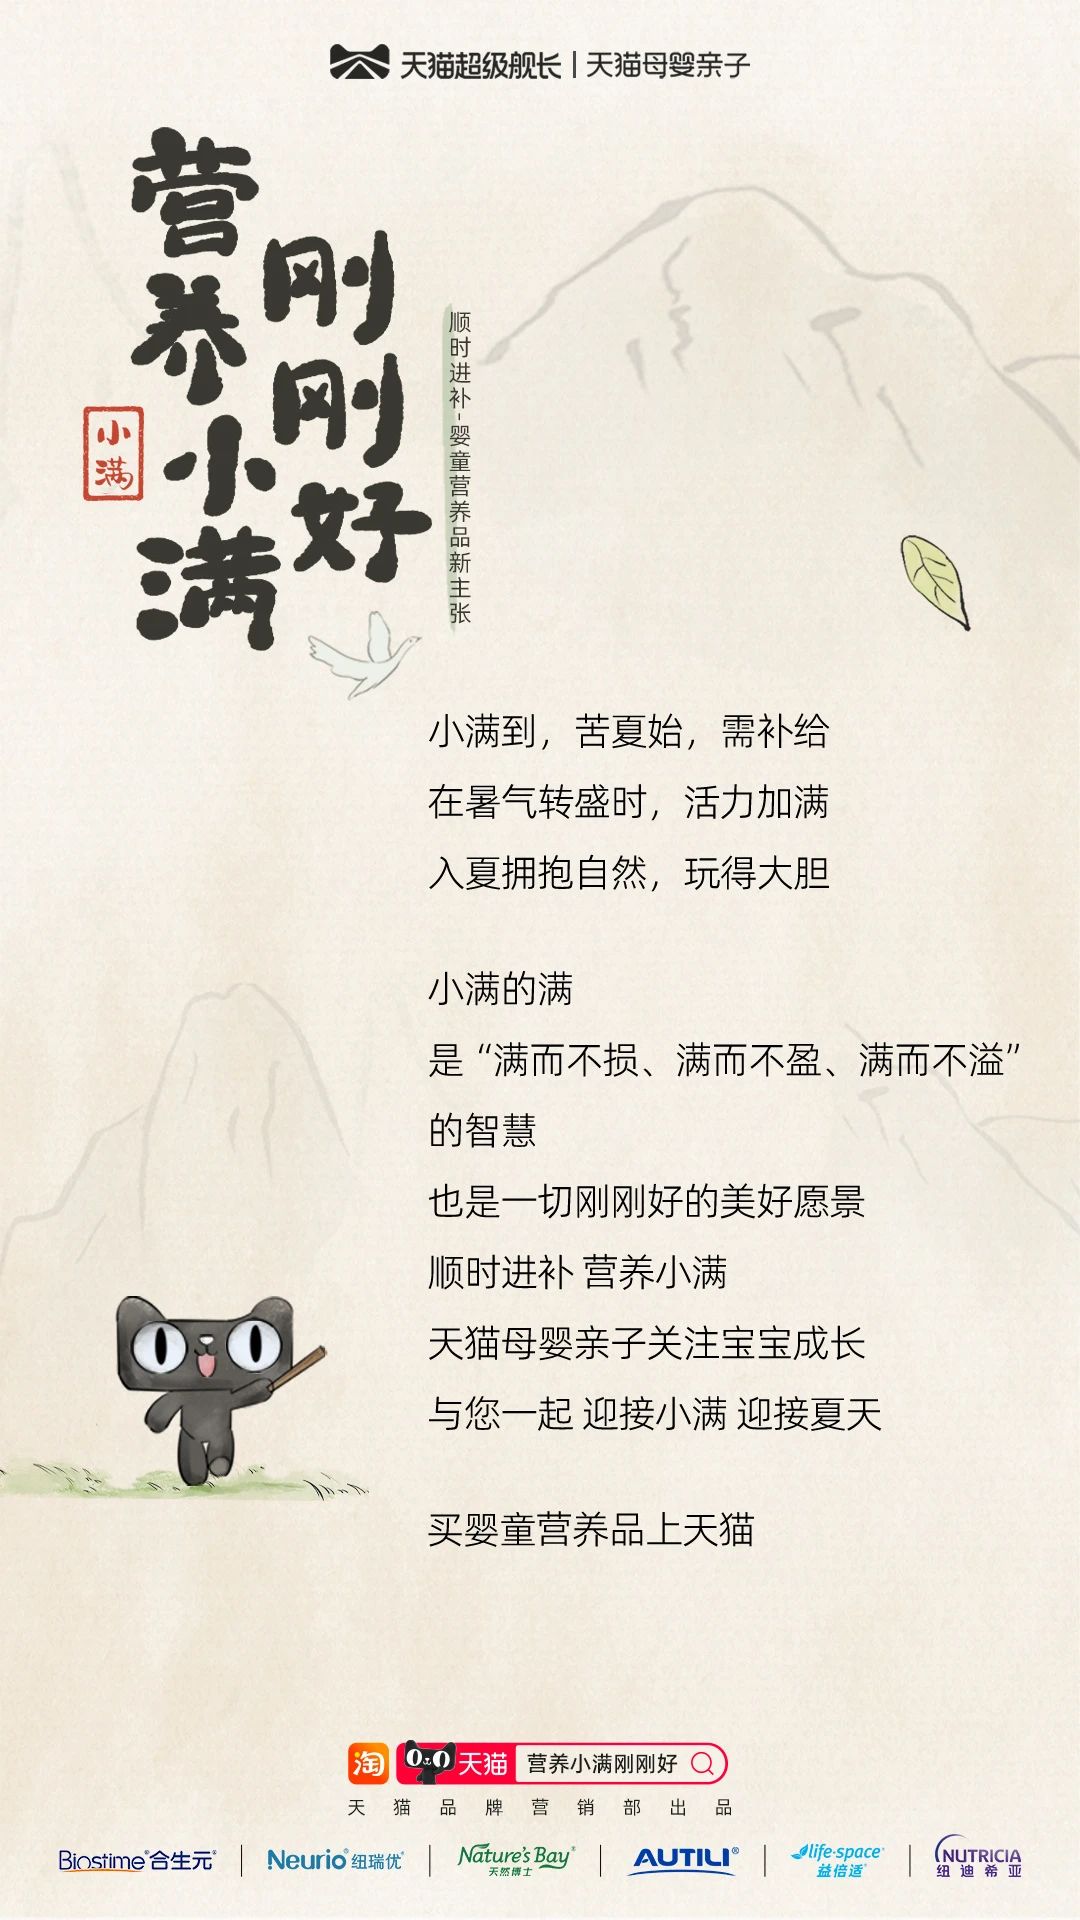 天猫超级舰长|天猫母婴亲子
营养小满
刚刚好
小满
顺时进补-婴童营养品新主张
小满到，苦夏始，需补给
在暑气转盛时，活力加满
入夏拥抱自然，玩得大胆
小满的满
是“满而不损、满而不盈、满而不溢”
的智慧
也是一切刚刚好的美好愿景
顺时进补 营养小满
天猫母婴亲子关注宝宝成长
与您一起 迎接小满 迎接夏天
买婴童营养品上天猫
淘 天猫 营养小满刚刚好
天猫品牌营销部出品
Biostime®合生元® | Neurio®纽瑞优® | Nature's Bay® 天然博士 | AUTILI® | life·space® 益倍适® | NUTRICIA 纽迪希亚